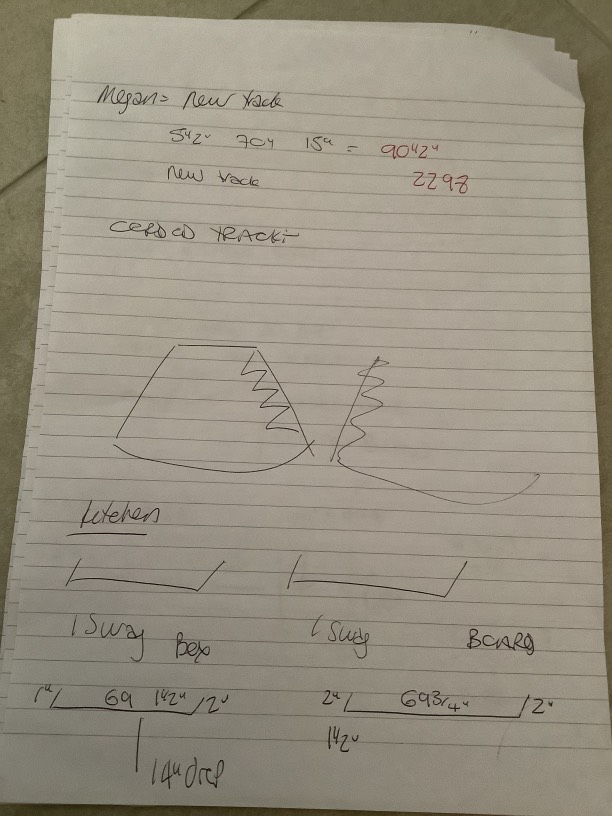 Megan = new track
5"2" 70" 15" = 90"2"
new track 2298
CORDED TRACK:-
Kitchen
1 Swag Box 1 Swag BOARD
1" 69 1"2" 2" 2" 69 3/4" 2"
1"2"
14" drop